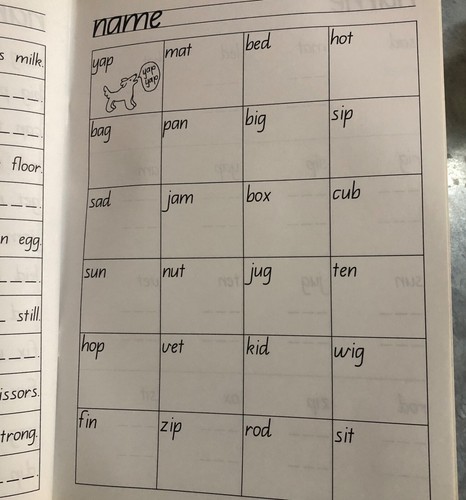 name
yap mat bed hot
yap
yap
bag pan big sip
sad jam box cub
sun nut jug ten
hop vet kid wig
fin zip rod sit
milk.
floor.
egg.
still.